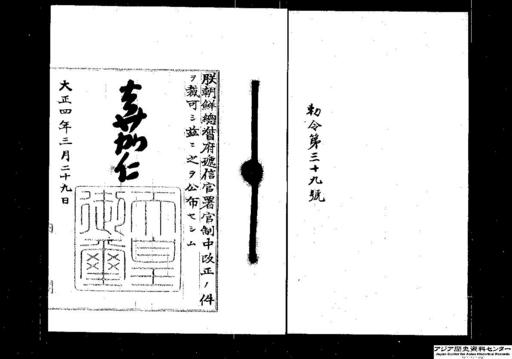 勅令第三十九號
朕朝鮮總督府遞信官署官制中改正ノ件
ヲ裁可シ茲ニ之ヲ公布セシム
嘉仁
天皇
御璽
大正四年三月二十九日
アジア歴史資料センター
Japan Center for Asian Historical Records